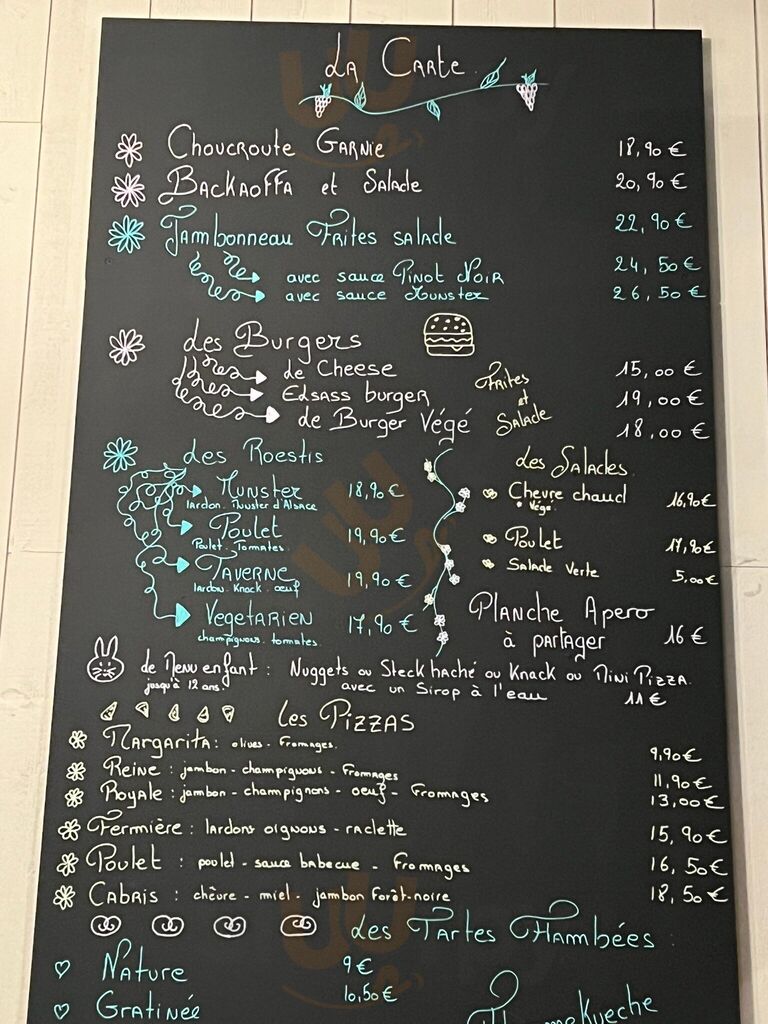 La Carte
Choucroute Garnie 18,90 €
Backaoffa et Salade 20,90 €
Jambonneau Frites salade 22,90 €
avec sauce Pinot Noir 24,50 €
avec sauce Munster 26,50 €
Les Burgers
de Cheese 15,00 €
Elsass burger 19,00 €
de Burger Végé 18,00 €
Frites et Salade
Les Roestis
Munster 18,90 €
lardon. Munster d'Alsace
Poulet 19,90 €
Poulet. Tomates.
Taverne 19,90 €
lardon. Knack. oeuf
Vegetarien 17,90 €
champignons. tomates.
Les Salades
Chevre chaud 16,90 €
* Végé.
Poulet 17,90 €
Salade Verte 5,00 €
Planche Apero
à partager 16 €
de Menu enfant : Nuggets ou Steck haché ou Knack ou Mini Pizza.
jusqu'à 12 ans. avec un Sirop à l'eau 11 €
Les Pizzas
Margarita : olives - Fromages. 9,90 €
Reine : jambon - champignons - Fromages 11,90 €
Royale : jambon - champignons - oeuf - Fromages 13,00 €
Fermière : lardons oignons - raclette 15,90 €
Poulet : poulet - sauce babecue - Fromages 16,50 €
Cabris : chèvre - miel - jambon Forêt-noire 18,50 €
Les Tartes Flambées :
Nature 9 €
Gratinée 10,50 €